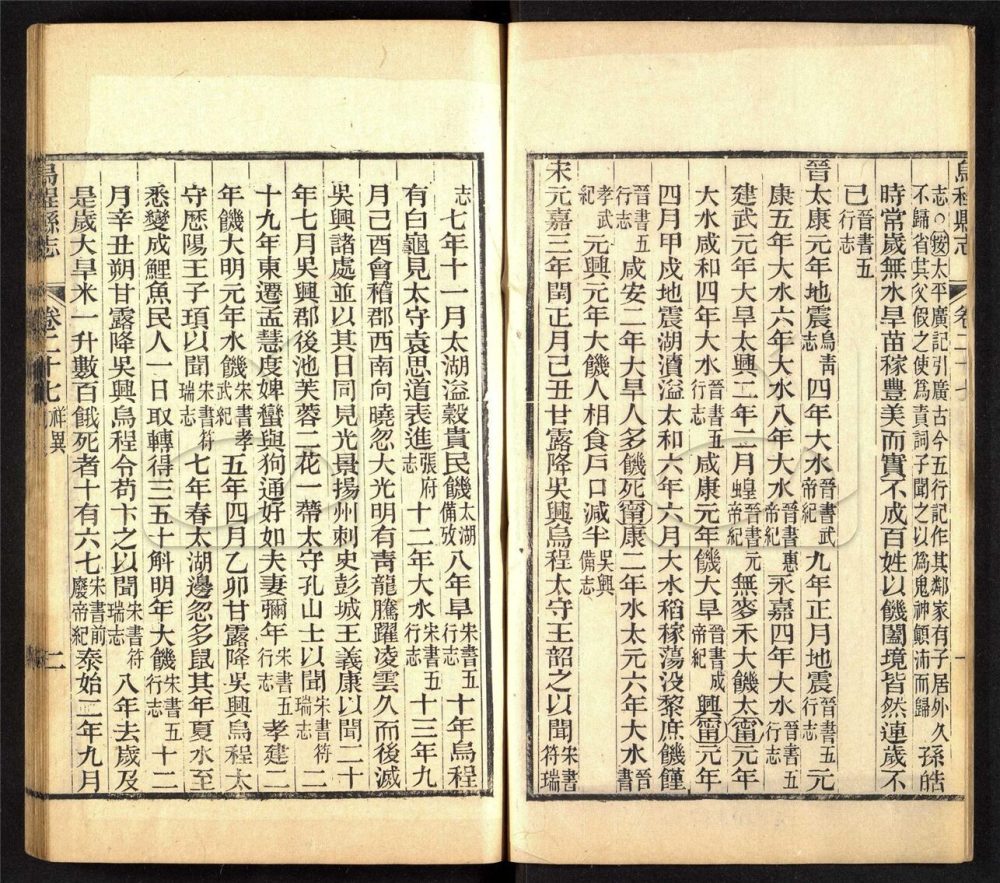 烏程縣志 卷二十七 一
志○按太平廣記引廣古今五行記作其鄰家有子居外久不歸省其父假之使爲責詞子聞之以爲鬼神顛沛而歸 孫皓
時常歲無水旱苗稼豐美而實不成百姓以饑闔境皆然連歲不
已晉書五行志
晉太康元年地震烏青志 四年大水晉書武帝紀 九年正月地震晉書五行志 元
康五年大水六年大水八年大水晉書惠帝紀 永嘉四年大水晉書五行志
建武元年大旱太興二年二月蝗晉書元帝紀 無麥禾大饑太甯元年
大水咸和四年大水晉書五行志 咸康元年饑大旱晉書成帝紀 興甯元年
四月甲戍地震湖瀆溢太和六年六月大水稻稼蕩没黎庶饑饉
晉書五行志 咸安二年大旱人多饑死甯康二年水太元六年大水晉書
孝武紀 元興元年大饑人相食戸口減半吳興備志
宋元嘉三年閏正月己丑甘露降吳興烏程太守王韶之以聞宋書符瑞
志 七年十一月太湖溢穀貴民饑太湖備攷 八年旱宋書五行志 十年烏程
有白龜見太守袁思道表進張府志 十二年大水宋書五行志 十三年九
月己酉會稽郡西南向曉忽大光明有靑龍騰躍凌雲久而後滅
吳興諸處並以其日同見光景揚州刺史彭城王義康以聞二十
年七月吳興郡後池芙蓉二花一蔕太守孔山士以聞宋書符瑞志 二
十九年東遷孟慧度婢蠻與狗通好如夫妻彌年宋書五行志 孝建二
年饑大明元年水饑宋書孝武紀 五年四月乙卯甘露降吳興烏程太
守歷陽王子頊以聞宋書符瑞志 七年春太湖邊忽多鼠其年夏水至
悉變成鯉魚民人一日取轉得三五十斛明年大饑宋書五行志 十二
月辛丑朔甘露降吳興烏程令苟卞之以聞宋書符瑞志 八年去歲及
是歲大旱米一升數百餓死者十有六七宋書前廢帝紀 泰始二年九月
烏程縣志 卷二十七 祥異 二